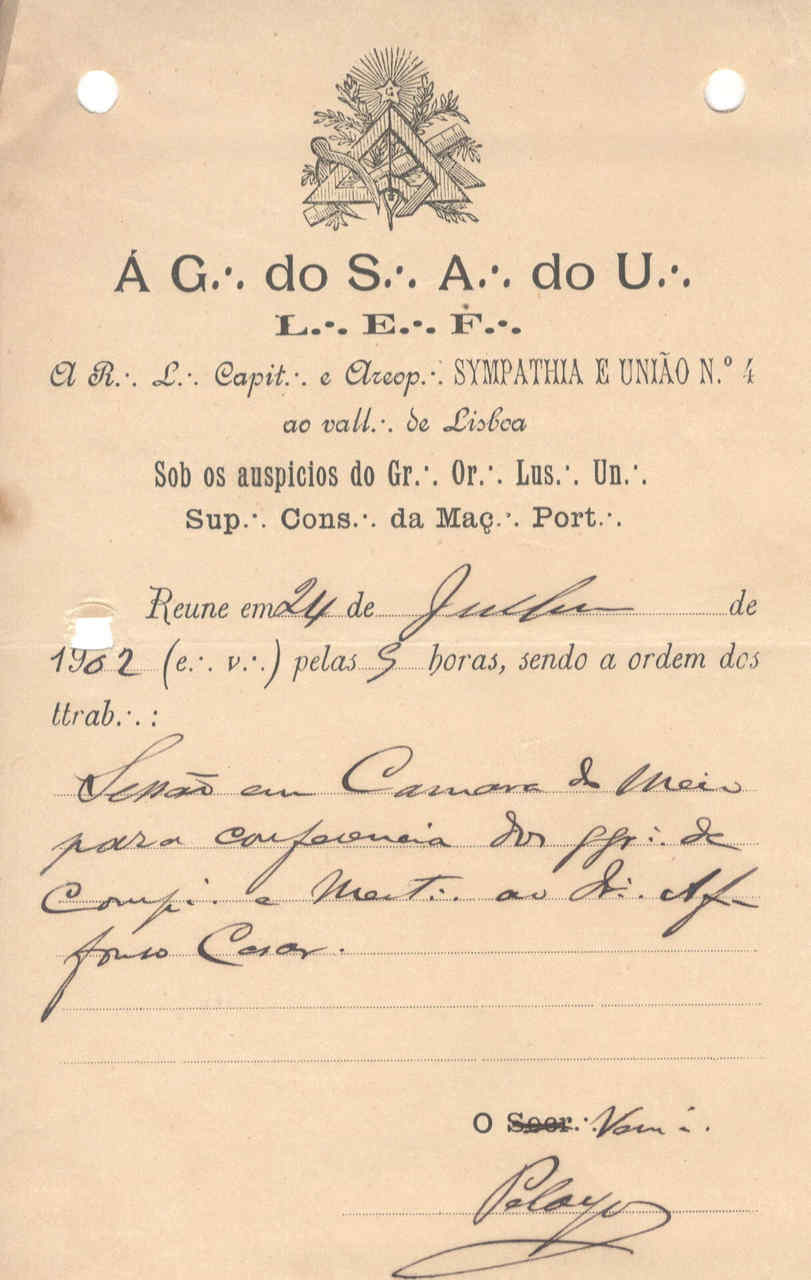 G
Á G.·. do S.·. A.·. do U.·.
L.·. E.·. F.·.
A R.·. L.·. Capit.·. e Areop.·. SYMPATHIA E UNIÃO N.º 4
ao vall.·. de Lisboa
Sob os auspicios do Gr.·. Or.·. Lus.·. Un.·.
Sup.·. Cons.·. da Maç.·. Port.·.
Reune em 24 de Julho de
1902 (e.·. v.·.) pelas 9 horas, sendo a ordem dos
ttrab.·. :
Sessão em Camara do Meio
para conferencia dos ggr.·. de
Comp.·. e Mest.·. ao Ir.·. Af-
fonso Cesar.
O Secr.·. Ven.·.
Pelayo